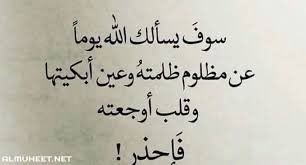 سوفَ يسألك الله يوماً
عن مظلوم ظلمتهُ وعين أبكيتها
وقلب أوجعته
فَإحذر !
ALMUHEET.NET